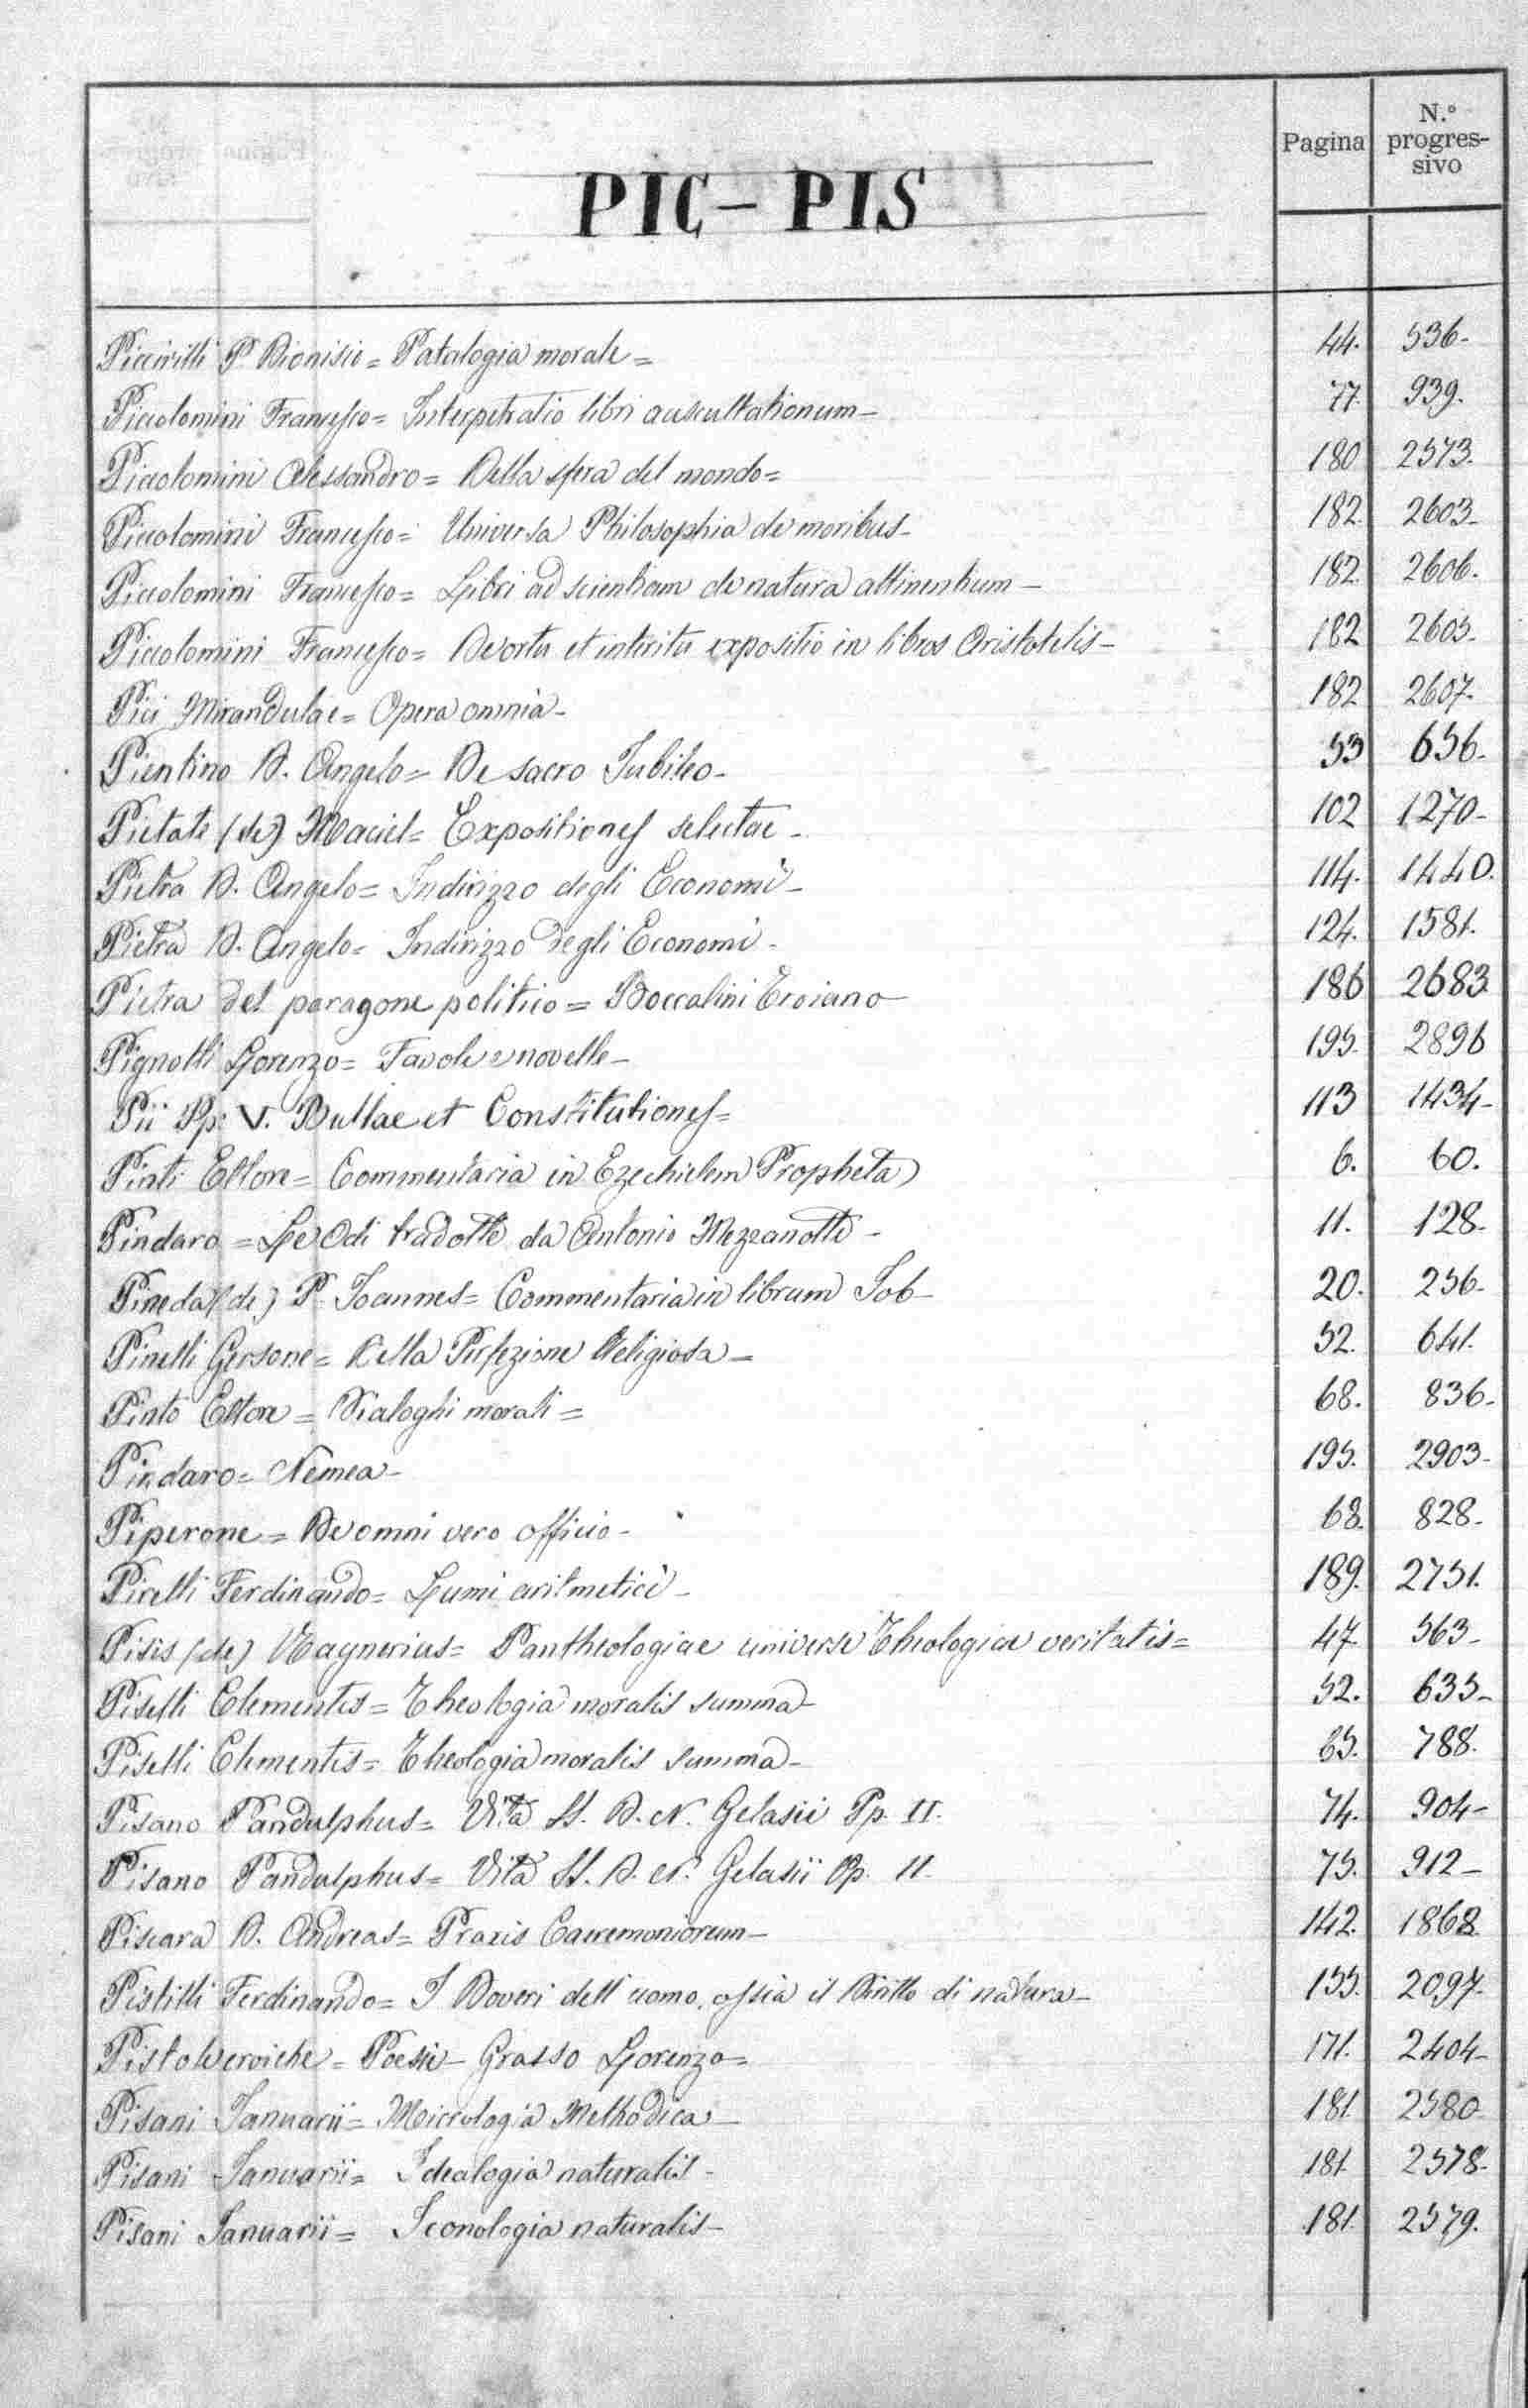 Pagina N.° progres-sivo
PIC - PIS
Piccirilli P. Dionisio = Patalogia morale = 44. 536-
Piccolomini Francesco = Interpetratio libri auscultationum - 77. 939.
Piccolomini Alessandro = Della sfera del mondo = 180 2573.
Piccolomini Francesco = Universa Philosophia de moribus - 182. 2603-
Piccolomini Francesco = Libri ad scientiam de natura attinentium - 182. 2606.
Piccolomini Francesco = De ortu et interitu expositio in libros Aristotelis - 182 2605.
Pici Mirandulae = Opera omnia - 182 2607.
Pientino D. Angelo = De sacro Jubileo - 53 656-
Pietate (de) Maciel = Expositiones selectae - 102 1270-
Pietra D. Angelo = Indirizzo degli Economi - 114. 1440.
Pietra D. Angelo = Indirizzo degli Economi - 124. 1581.
Pietra del paragone politico = Boccalini Troiano - 186 2683
Pignotti Lorenzo = Favole e novelle - 195. 2896
Pii Pp. V. Bullae et Constitutiones = 113 1434-
Pinti Ettore = Commentaria in Ezechielem Propheta 6. 60.
Pindaro = Le Odi tradotte da Antonio Mezzanotte - 11. 128-
Pineda (de) P. Joannes = Commentaria in librum Job - 20. 256-
Pinelli Gersone = Della Perfezione Religiosa - 52. 641.
Pinto Ettore = Dialoghi morali = 68. 836-
Pindaro = Nemea - 195. 2903-
Piperone = De omni vero officio - 68. 828-
Pirelli Ferdinando = Lumi aritmetici - 189. 2751.
Pisis (de) Raynerius = Pantheologiae universe Theologiae veritatis = 47. 563-
Piselli Clementis = Theologia moralis summa - 52. 635-
Piselli Clementis = Theologia moralis summa - 65. 788.
Pisano Pandulphus = Vita SS. D. N. Gelasii Pp. II. 74. 904-
Pisano Pandulphus = Vita SS. D. N. Gelasii Pp. II. 75. 912-
Piscara D. Andreas = Praxis Caeremoniorum - 142. 1868.
Pistilli Ferdinando = I Doveri dell'uomo, ossia il Diritto di natura - 155. 2097.
Pistole eroiche = Poesie - Grasso Lorenzo = 171. 2404-
Pisani Januarii = Micrologia Methodica - 181. 2580
Pisani Januarii = Idealogia naturalis - 181. 2578.
Pisani Januarii = Iconologia naturalis - 181. 2579.